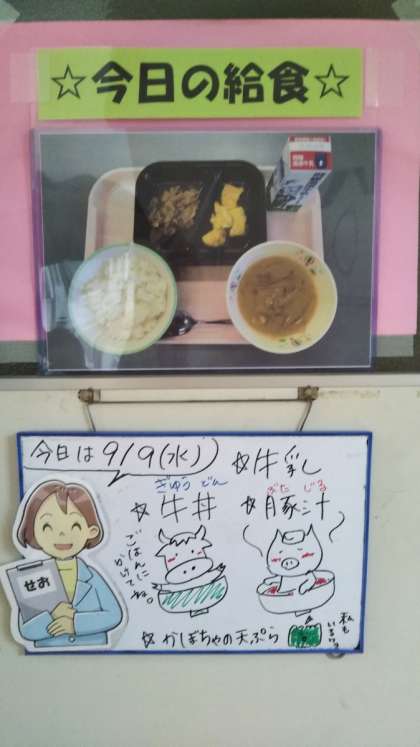 ☆今日の給食☆
今日は 9/9(水)
☆牛乳
ぎゅう どん
☆牛丼
ぶた じる
☆豚汁
ごはんに
かけてね。
せお
☆かぼちゃの天ぷら
私も
いるよっ